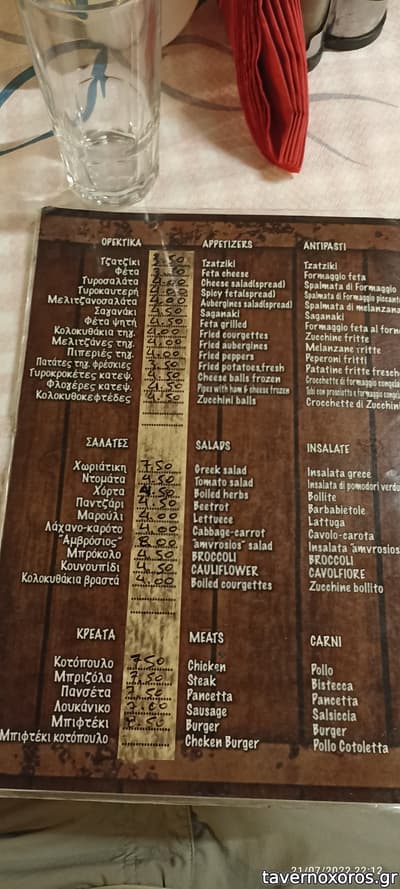 ΟΡΕΚΤΙΚΑ APPETIZERS ANTIPASTI
Τζατζίκι 3.50 Tzatziki Tzatziki
Φέτα Feta cheese Formaggio feta
Τυροσαλάτα 4.00 Cheese salad(spread) Spalmata di Formaggio
Τυροκαυτερή 4.00 Spicy feta(spread) Spalmata di Formaggio piccant
Μελιτζανοσαλάτα 4.00 Aubergines salad(spread) Spalmata di melanzana
Σαγανάκι 4.50 Saganaki Saganaki
Φέτα ψητή 4.50 Feta grilled Formaggio feta al forn
Κολοκυθάκια τηγ. 4.00 Fried courgettes Zucchine fritte
Μελιτζάνες τηγ. 4.00 Fried aubergines Melanzane fritte
Πιπεριές τηγ. 4.00 Fried peppers Peperoni fritti
Πατάτες τηγ. φρέσκιες Fried potatoes,fresh Patatine fritte fresch
Τυροκροκέτες κατεψ. Cheese balls frozen Crocchette di formaggio congela
Φλογέρες κατεψ. 4.50 Pipes with ham & cheese frozen Tubi con prosciutto e formaggio congel
Κολοκυθοκεφτέδες Zucchini balls Crocchette di Zucchin
ΣΑΛΑΤΕΣ SALADS INSALATE
Χωριάτικη 7.50 Greek salad Insalata grece
Ντομάτα 4.50 Tomato salad Insalata di pomodori verdu
Χόρτα 4.50 Boiled herbs Bollite
Παντζάρι 4.50 Beetrot Barbabietole
Μαρούλι 4.00 Lettuece Lattuga
Λάχανο-καρότο 4.00 Cabbage-carrot Cavolo-carota
"Αμβρόσιος" "amvrosios" salad Insalata "amvrosios
Μπρόκολο 4.50 BROCCOLI BROCCOLI
Κουνουπίδι 4.50 CAULIFLOWER CAVOLFIORE
Κολοκυθάκια βραστά 4.00 Boiled courgettes Zucchine bollito
ΚΡΕΑΤΑ MEATS CARNI
Κοτόπουλο 7.50 Chicken Pollo
Μπριζόλα 7.50 Steak Bistecca
Πανσέτα 7.50 Pancetta Pancetta
Λουκάνικο Sausage Salsiccia
Μπιφτέκι Burger Burger
Μπιφτέκι κοτόπουλο Chcken Burger Pollo Cotoletta
21/07/2022 22:12
tavernoxoros.gr